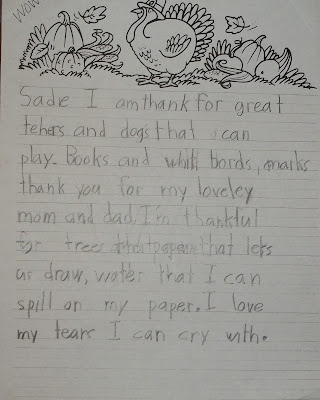 wow
Sadie I am thank for great
tehers and dogs that can
play. Books and whitt bords, marks
thank you for my loveley
mom and dad. I'm thankful
for trees that lets
us draw, water that I can
spill on my paper. I love
my tears I can cry with.